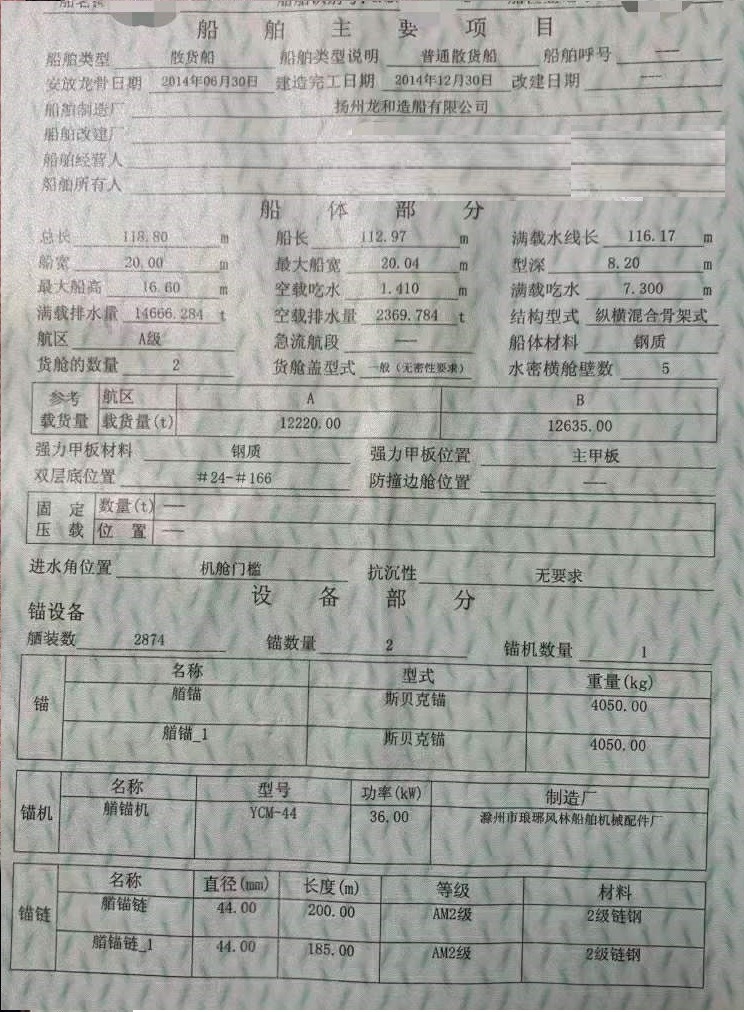 船舶主要项目
船舶类型 散货船 船舶类型说明 普通散货船 船舶呼号 —
安放龙骨日期 2014年06月30日 建造完工日期 2014年12月30日 改建日期 —
船舶制造厂 扬州龙和造船有限公司
船舶改建厂
船舶经营人
船舶所有人
船体部分
总长 118.80 m 船长 112.97 m 满载水线长 116.17 m
船宽 20.00 m 最大船宽 20.04 m 型深 8.20 m
最大船高 16.60 m 空载吃水 1.410 m 满载吃水 7.300 m
满载排水量 14666.284 t 空载排水量 2369.784 t 结构型式 纵横混合骨架式
航区 A级 急流航段 — 船体材料 钢质
货舱的数量 2 货舱盖型式 一般(无密性要求) 水密横舱壁数 5
参考 航区 A B
载货量 载货量(t) 12220.00 12635.00
强力甲板材料 钢质 强力甲板位置 主甲板
双层底位置 #24-#166 防撞边舱位置 —
固定 数量(t) —
压载 位置 —
进水角位置 机舱门槛 抗沉性 无要求
设备部分
锚设备
舾装数 2874 锚数量 2 锚机数量 1
锚 名称 型式 重量(kg)
艏锚 斯贝克锚 4050.00
艏锚_1 斯贝克锚 4050.00
锚机 名称 型号 功率(kW) 制造厂
艏锚机 YCM-44 36.00 滁州市琅琊风林船舶机械配件厂
锚链 名称 直径(mm) 长度(m) 等级 材料
艏锚链 44.00 200.00 AM2级 2级链钢
艏锚链_1 44.00 185.00 AM2级 2级链钢